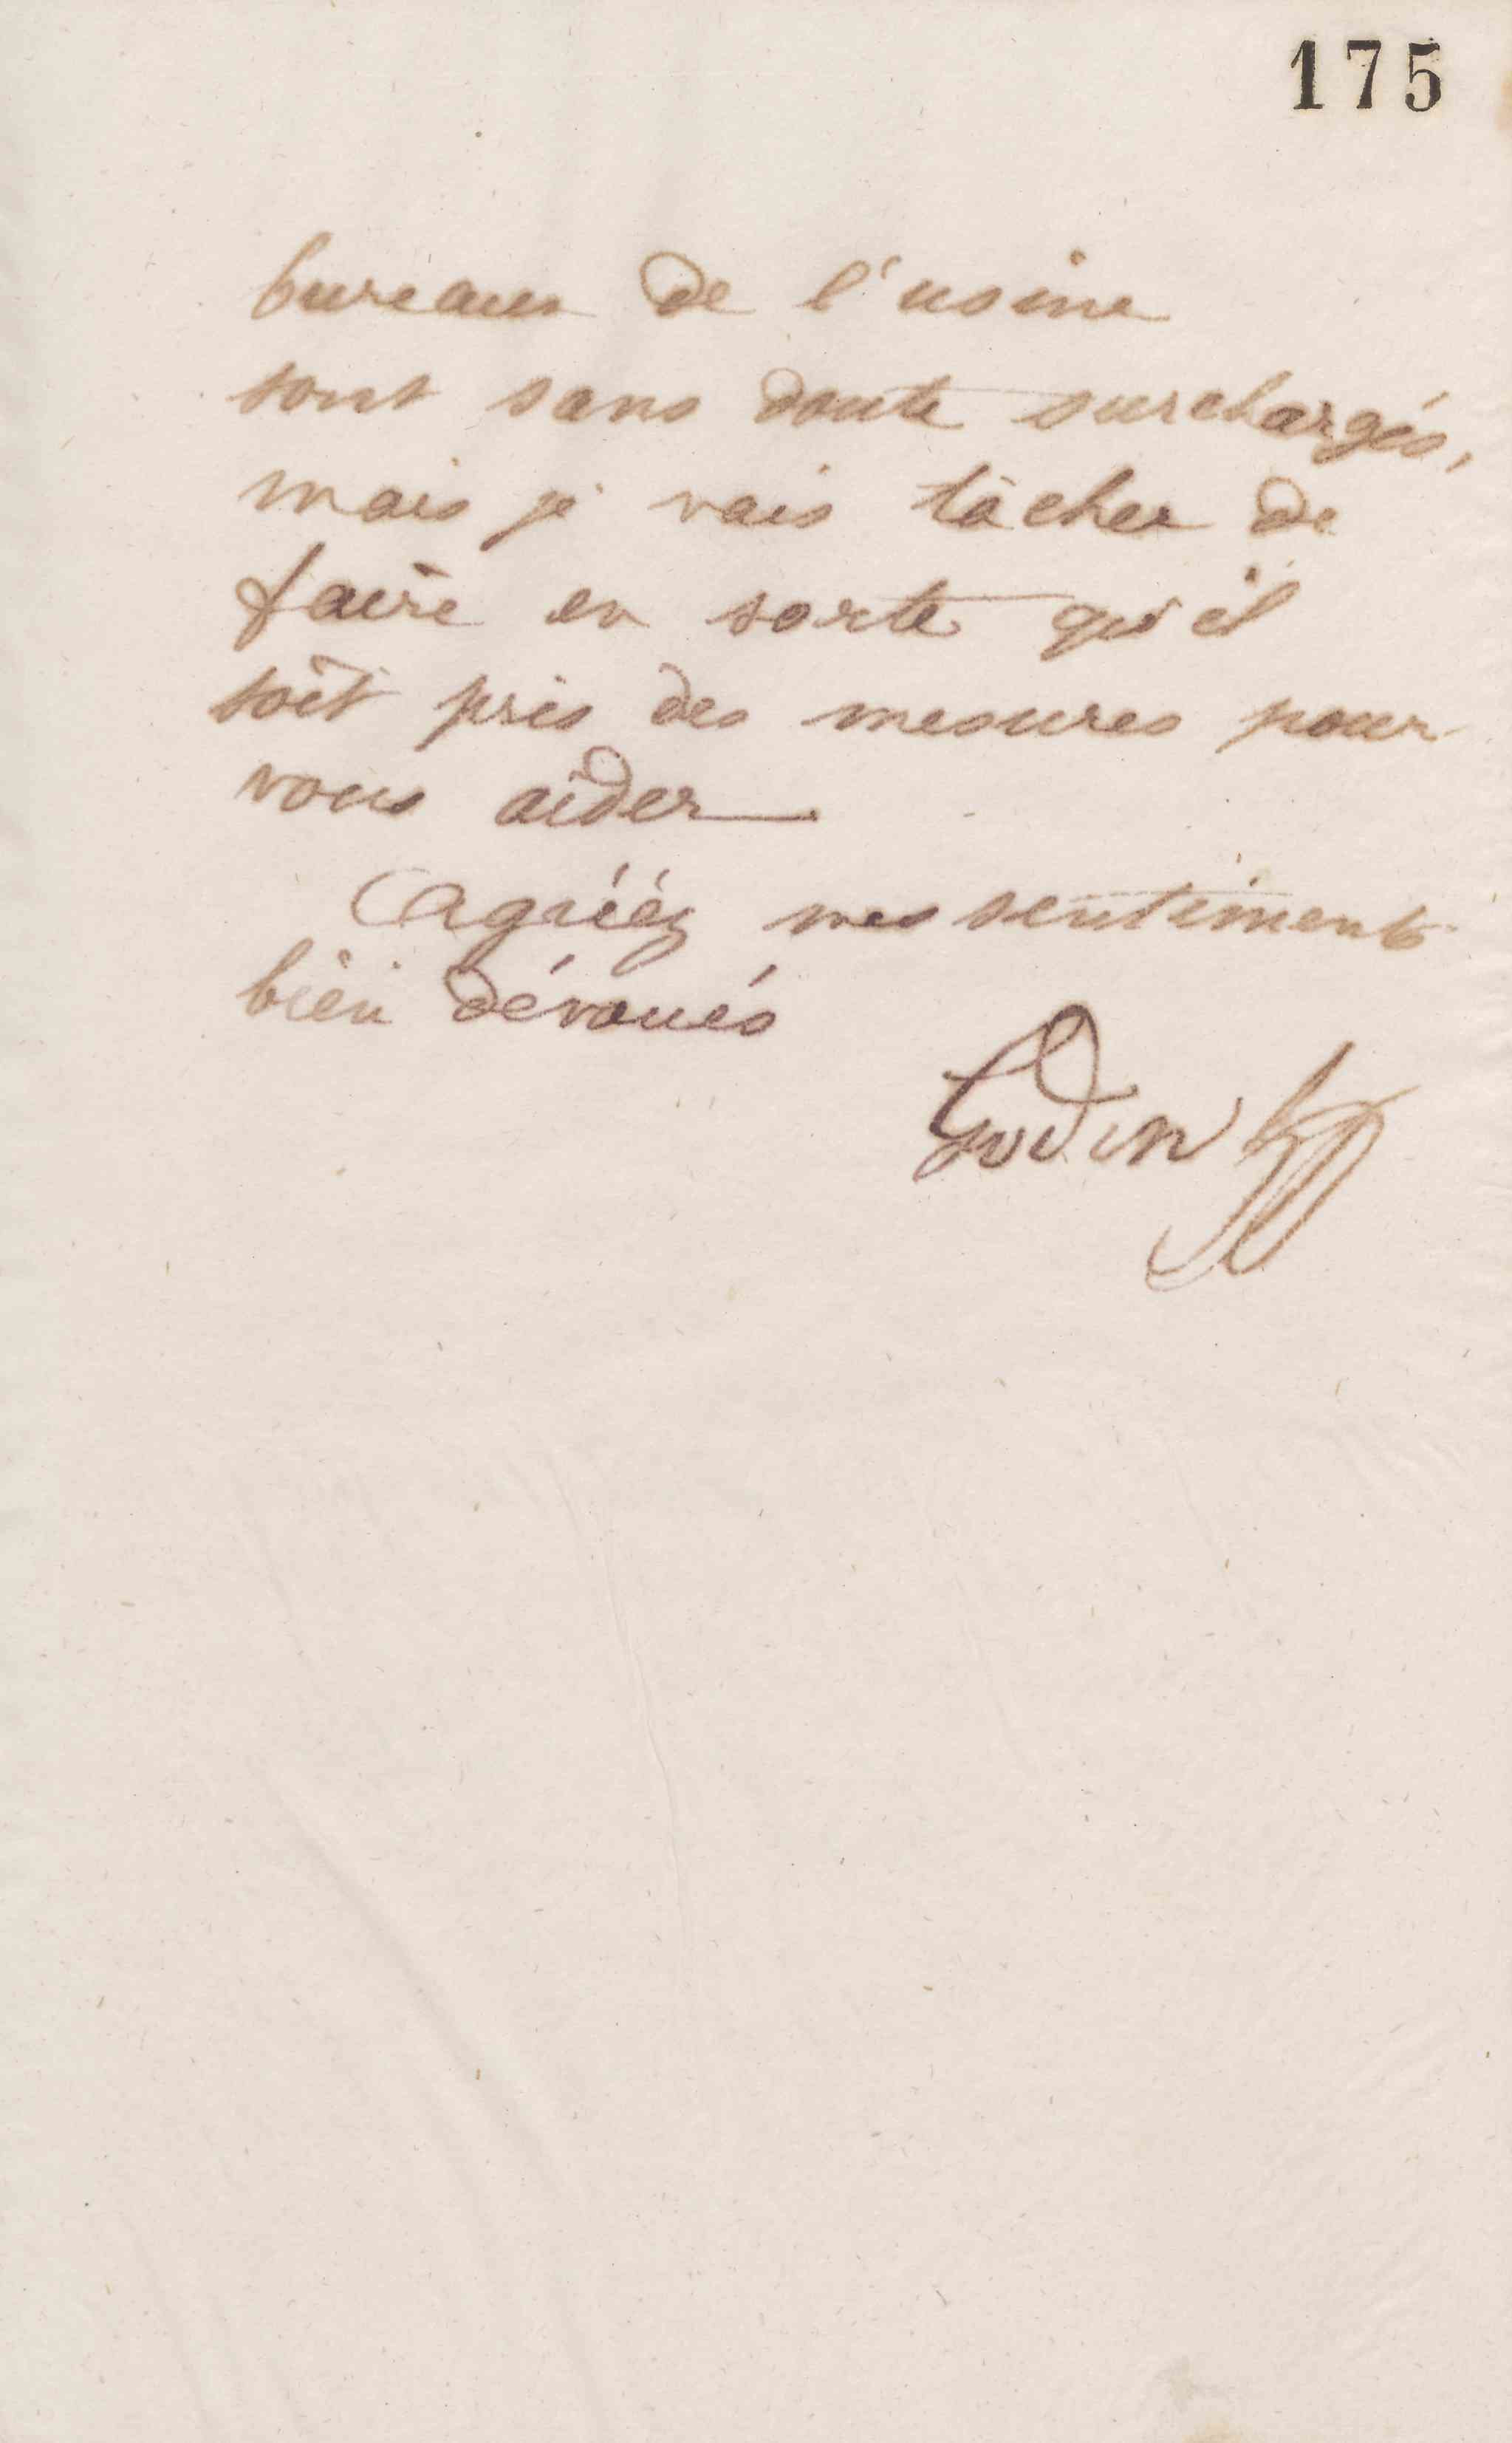 175
bureaux de l'usine
sont sans doute surchargés,
mais je vais tâcher de
faire en sorte qu'il
soit pris des mesures pour
vous aider
Agréez mes sentiments
bien dévoués
Godin